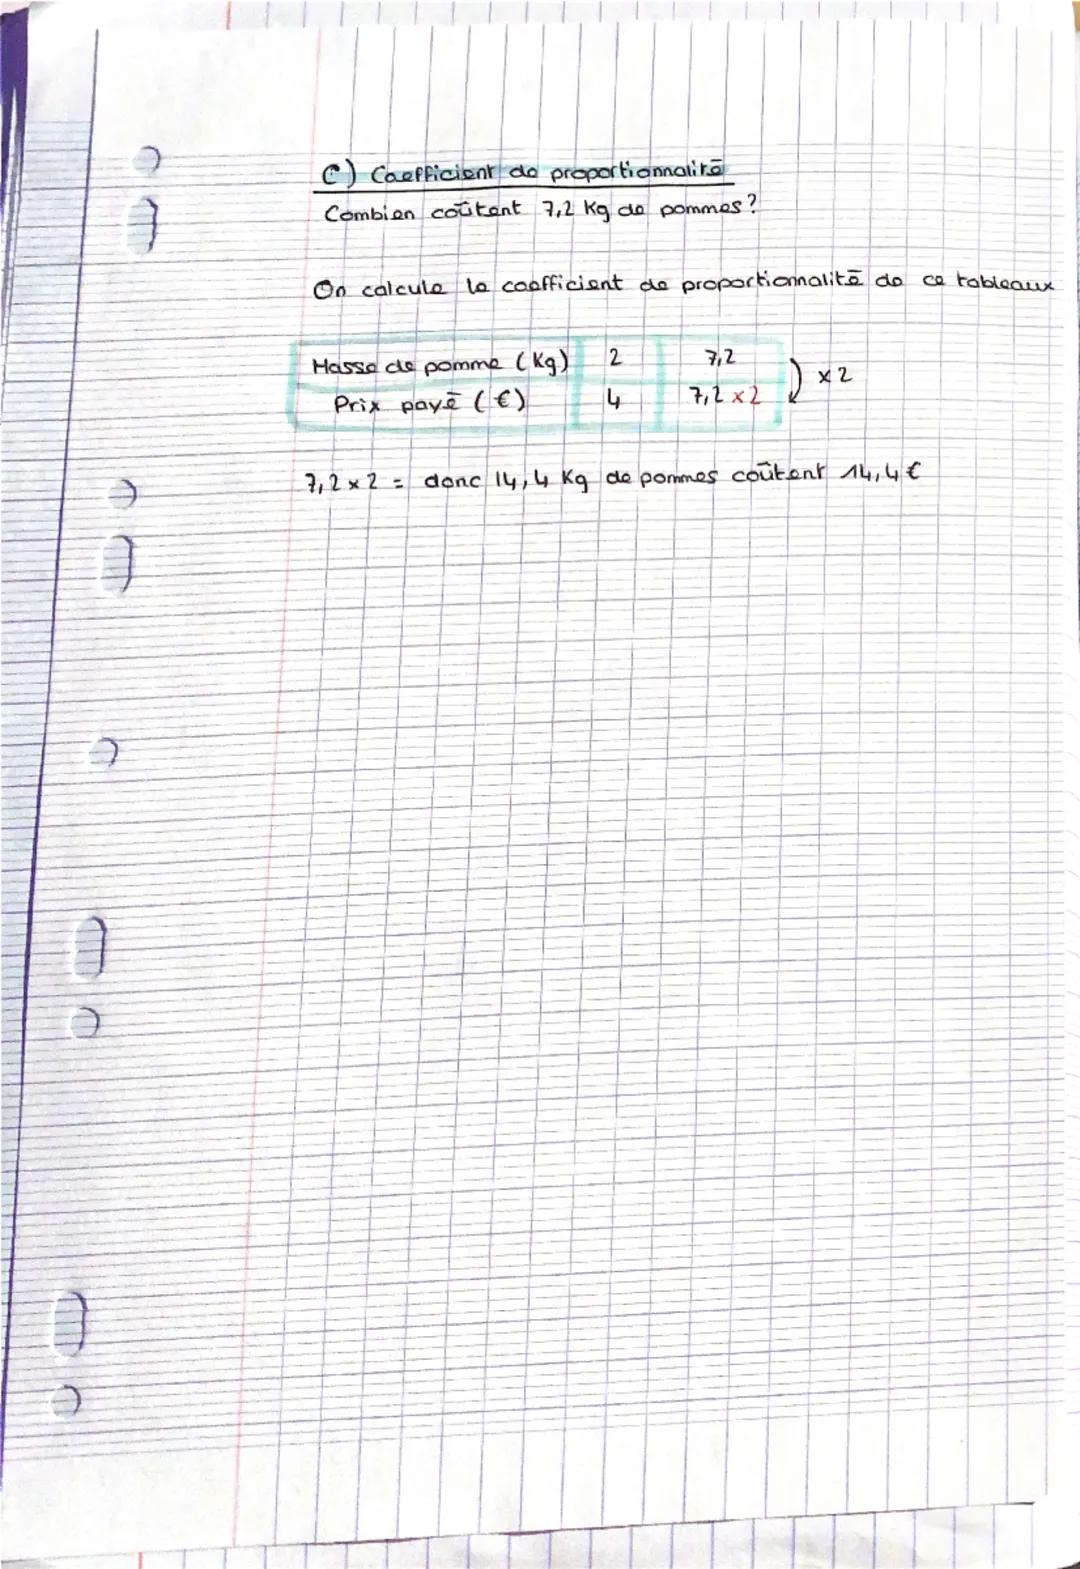 C) Coefficient de proportionnalité
Combien coûtent 7,2 Kg de pommes ?
On calcule le coefficient de proportionnalité de ce tableaux
Masse de pomme (Kg) 2 7,2
Prix payé (€) 4 7,2 x 2
x 2
7,2 x 2 = donc 14,4 Kg de pommes coûtent 14,4 €